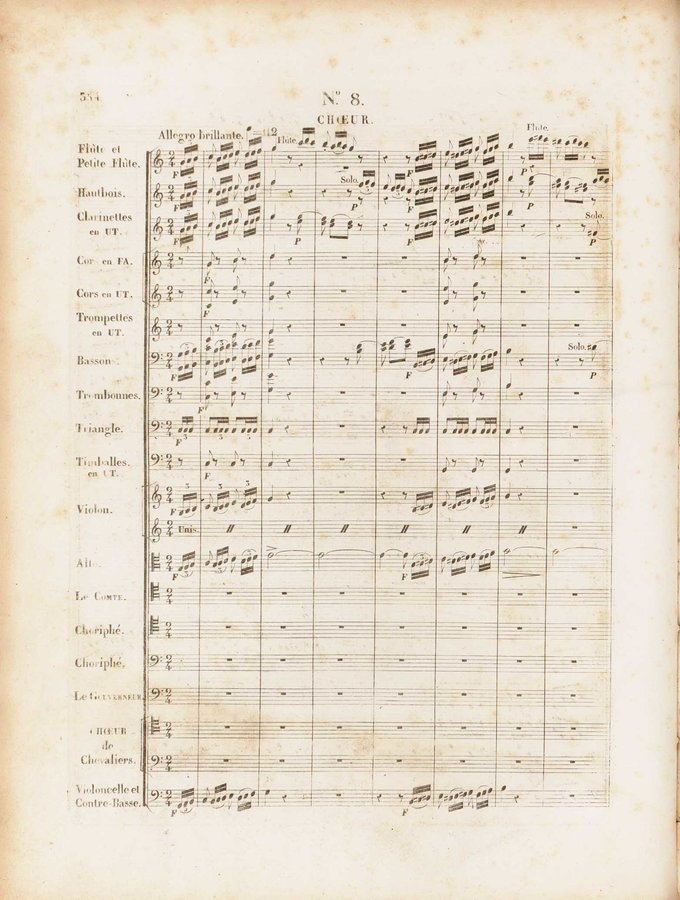 334
N.º 8.
CHŒUR.
Allegro brillante. = 112
Flûte.
Flûte.
Flûte et
Petite Flûte.
F
P
Solo.
Hautbois.
F
P
Clarinettes
en UT.
Solo.
F
P
F
P
Cors en FA.
F
Cors en UT.
F
Trompettes
en UT.
Basson.
Solo.
F
F
P
Trombonnes.
F
Triangle.
F
3
3
3
Timballes.
en UT.
F
Violon.
3
3
3
F
F
Unis.
Alto.
F
F
LE COMTE.
Choriphé.
Choriphé.
LE GOUVERNEUR.
CHŒUR
de
Chevaliers.
Violoncelle et
Contre-Basse.
F
F